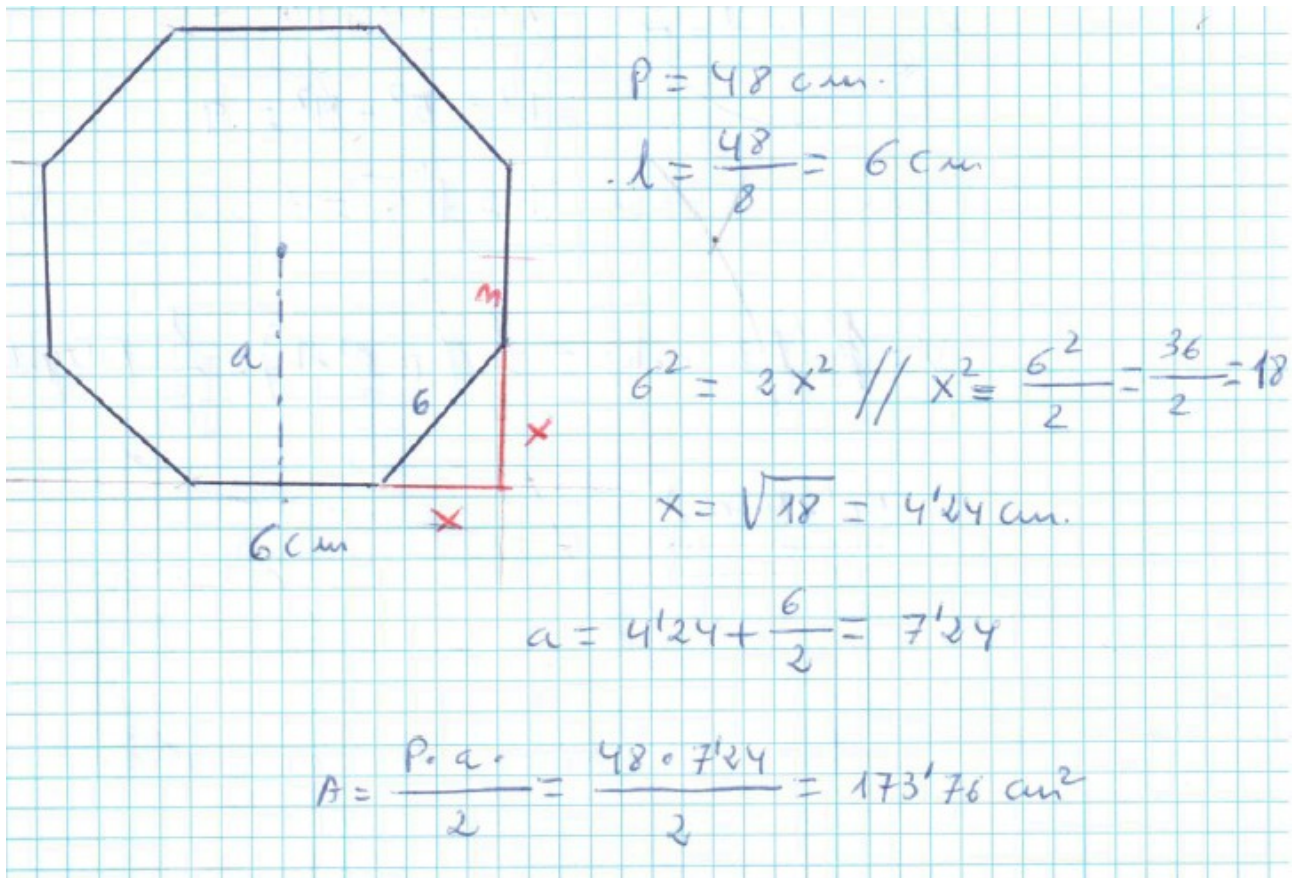 P = 48 cm.
l = 48/8 = 6 cm
3
a
6
x
x
6 cm
6² = 2x² // x² = 6²/2 = 36/2 = 18
x = √18 = 4'24 cm.
a = 4'24 + 6/2 = 7'24
A = P·a·/2 = 48·7'24/2 = 173'76 cm²